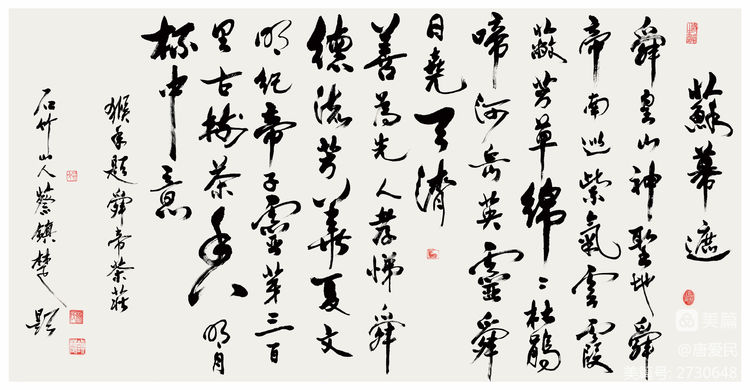 蘇幕遮
舜皇山神聖地舜
帝南巡紫氣雲霞
蔽芳草綿〻杜鵑
啼河岳英靈舜
日堯天濟
善為先人孝悌舜
德流芳華夏文
明紀帝子靈芽三百
里古樹茶香明月
杯中意
猴年題舜帝茶莊
石竹山人蔡鎮楚題
美篇
@唐爱民
美篇号: 2730648